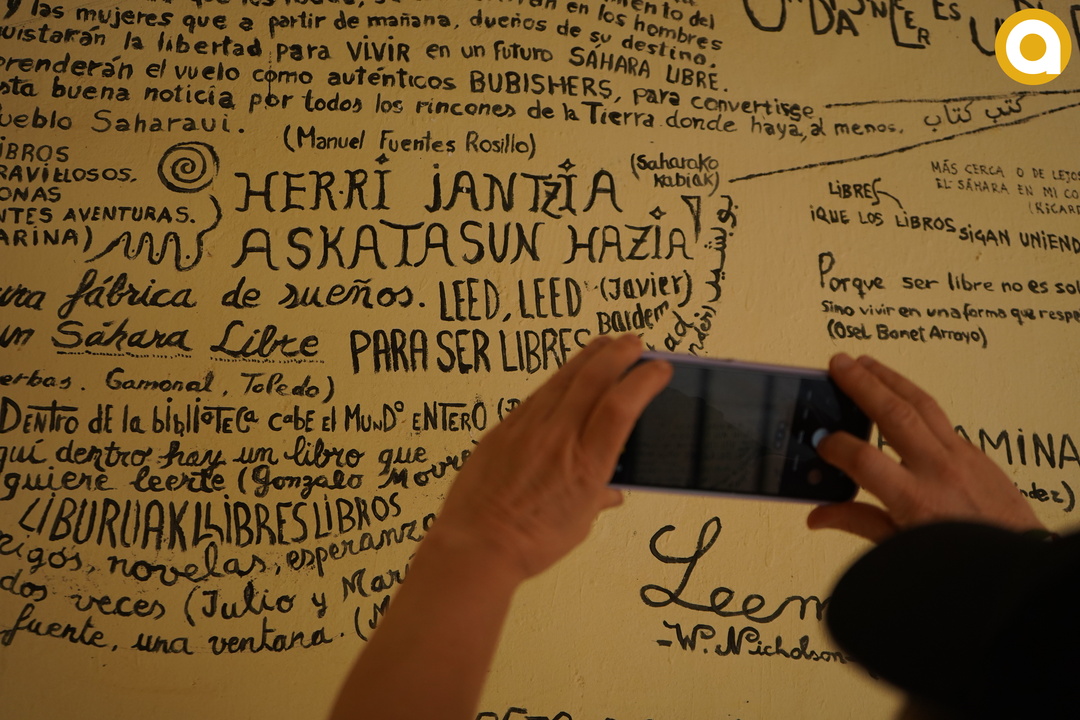 y las mujeres que a partir de mañana, dueños de su destino,
la libertad para VIVIR en un futuro SÁHARA LIBRE.
prenderán el vuelo como auténticos BUBISHERS, para convertirse
esta buena noticia por todos los rincones de la Tierra donde haya, al menos,
pueblo Saharaui.
(Manuel Fuentes Rosillo)
كتب كتاب
HERRI JANTZIA
ASKATASUN HAZIA
(Saharako
kabiak)
LIBROS
RAVILLOSOS.
ONAS
NTES AVENTURAS.
ARINA)
una fábrica de sueños.
un Sáhara Libre
erbas. Gamonal, Toledo)
LEED, LEED
PARA SER LIBRES
(Javier)
Bardem
DENTRO dE la bibliOTECa cabE el MUNDO ENTERO
quí dentro hay un libro que
quiere leerte (Gonzalo Moure
LIBURUAK LIBRES LIBROS
igos, novelas, esperanz
dos veces (Julio y Mari
fuente, una ventana. (M
MÁS CERCA O DE LEJOS
EL SÁHARA EN MI CO
(RICARD
LIBRES
¡QUE LOS LIBROS SIGAN UNIEND
Porque ser libre no es sol
Sino vivir en una forma que respe
(Osel Bonet Arroyo)
AMINA
ndez)
Leem
-W. Nicholson-
a